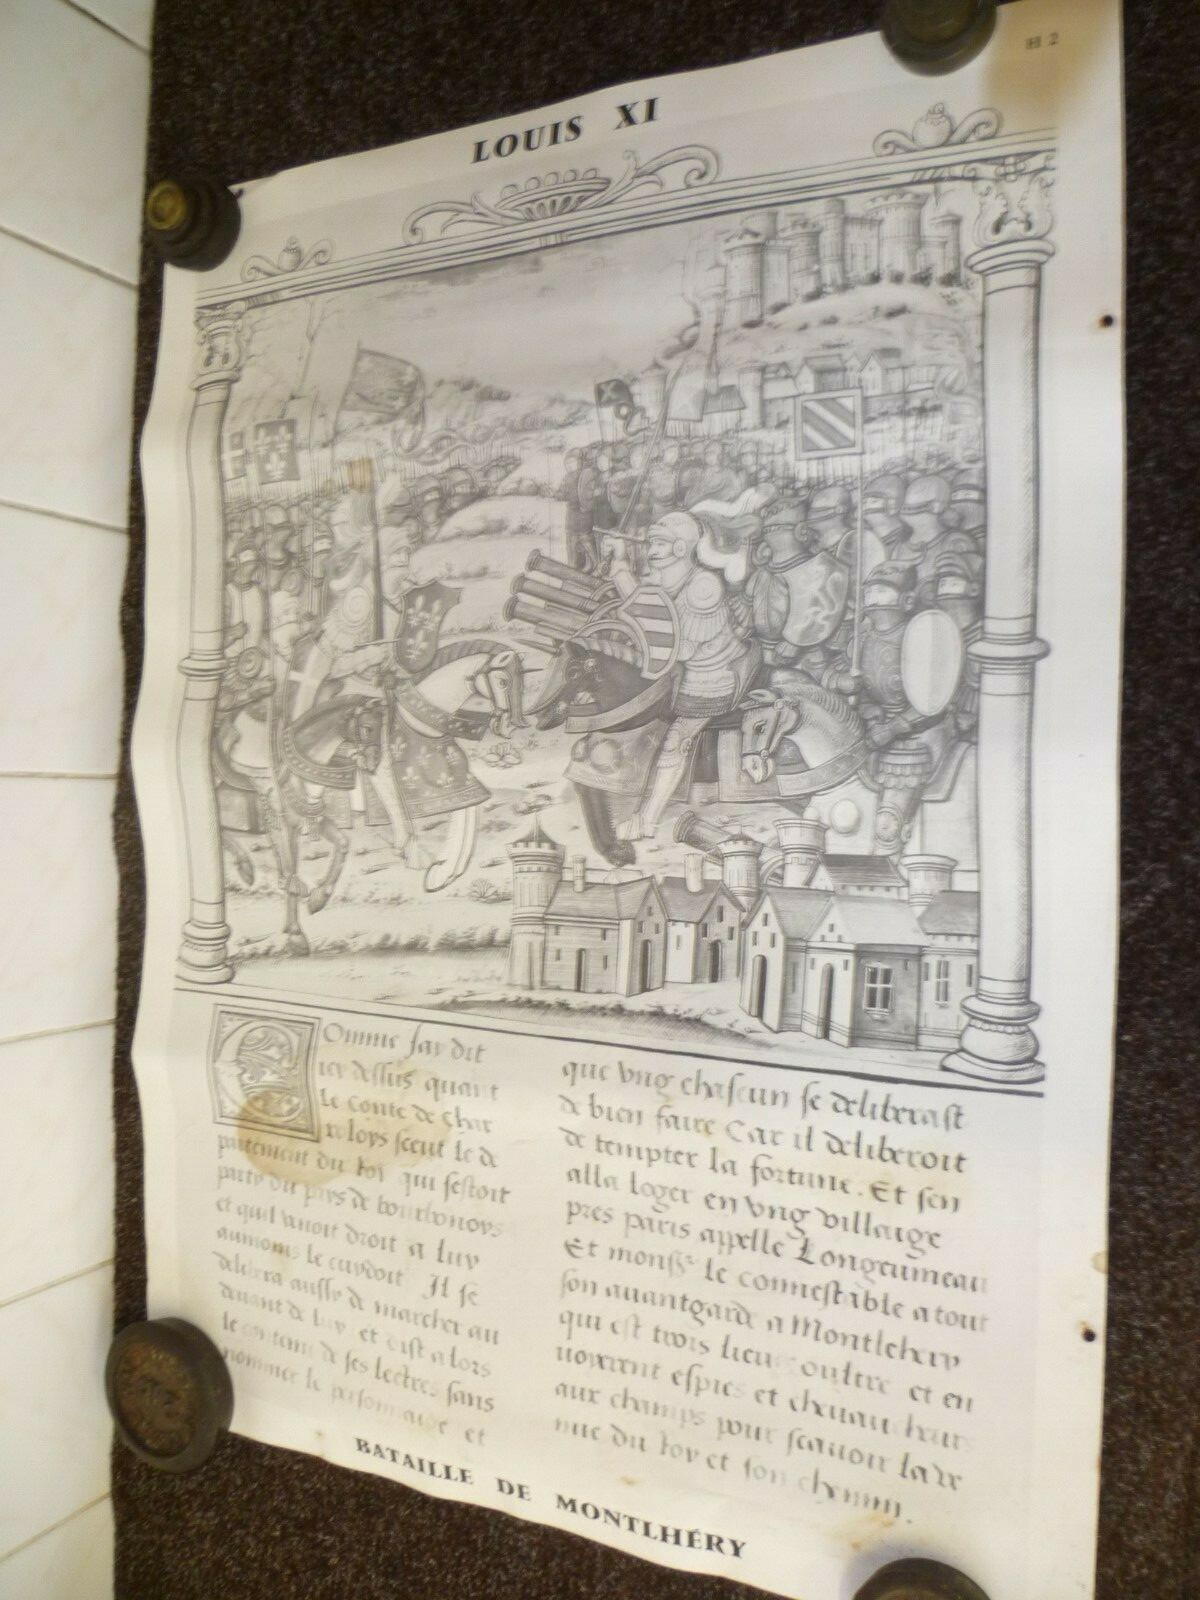 H 2
LOUIS XI
Comme Jay dit
icy dessus quant
le conte de Char
roloys sceut le de
partement du Roy qui sestoit
party du pays de bourbonoys
et quil venoit droit a luy
aumoins le cuydoit Il se
delibera aussy de marcher au
deuant de luy et dist alors
le contenu de ses lectres sans
nommer le personnaige et
que vng chascun se deliberast
de bien faire Car il deliberoit
de tempter la fortune. Et sen
alla loger en vng villaige
pres paris appelle Longeumeau
Et monsr le connestable a tout
son auantgarde a Montlehery
qui est troys lieues oultre et en
uoyerent espies et cheuaucheurs
aux champs pour scauoir la ve
nue du Roy et son chemin.
BATAILLE DE MONTLHÉRY